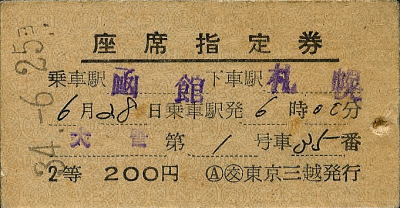 座席指定券
乗車駅 函館 下車駅 札幌
6月28日乗車駅発 6時00分
大雪 第 1 号車 35番
2等 200円 Ⓐ交東京三越発行
34.-6.25